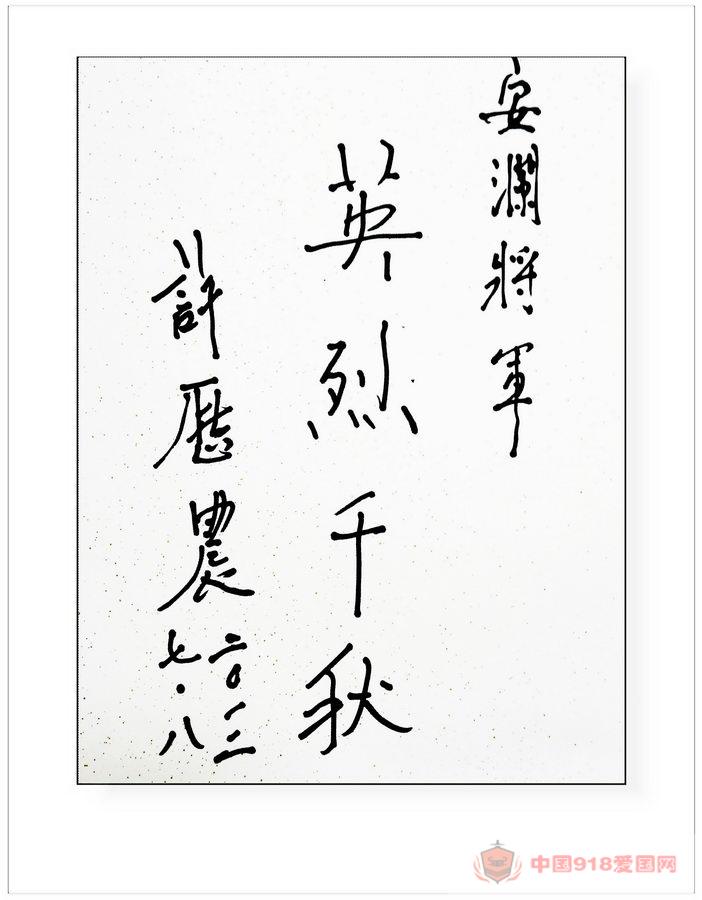 安瀾將軍
英烈千秋
許歷農
二〇一三
七·八
中国918爱国网